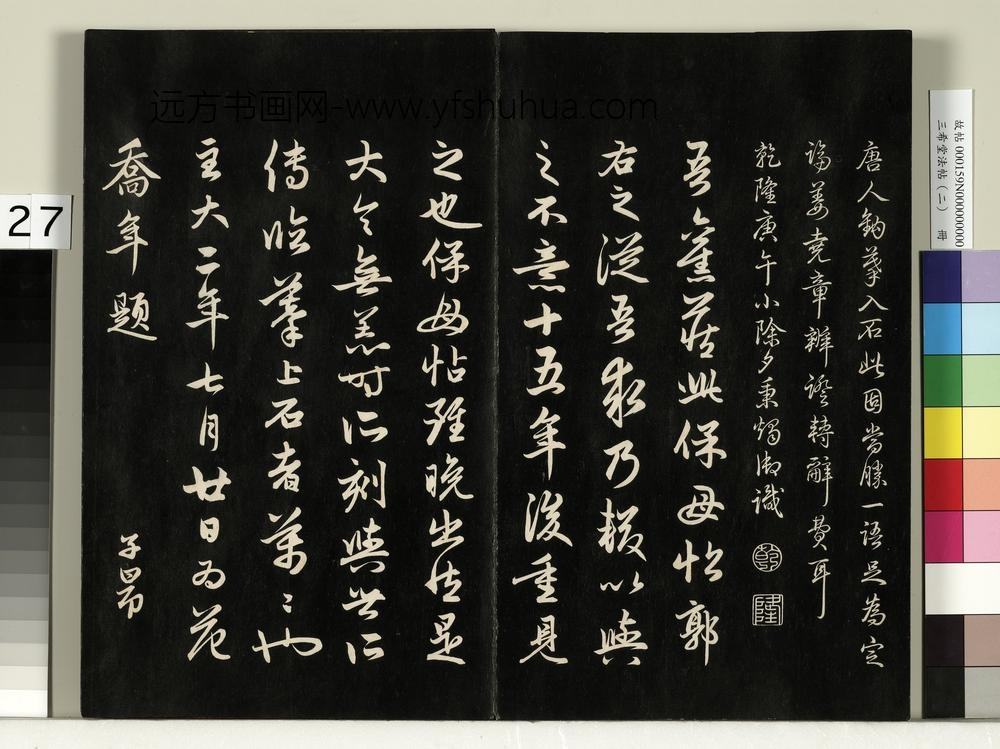 唐人鈎摹入石此固當勝一語足為定
論姜堯章辨證轉辭費耳
乾隆庚午小除夕秉燭御識
乾
隆
吾舊藏此保母帖郭
右之從吾求乃輟以與
之不意十五年後重見
之也保母帖雖晚出然是
大令無恙時所刻與世所
傳臨摹上石者萬〻也
至大二年七月廿日為范
喬年題
子昂
远方书画网-www.yfshuhua.com
故帖 000159N000000000
三希堂法帖(二) 冊
27